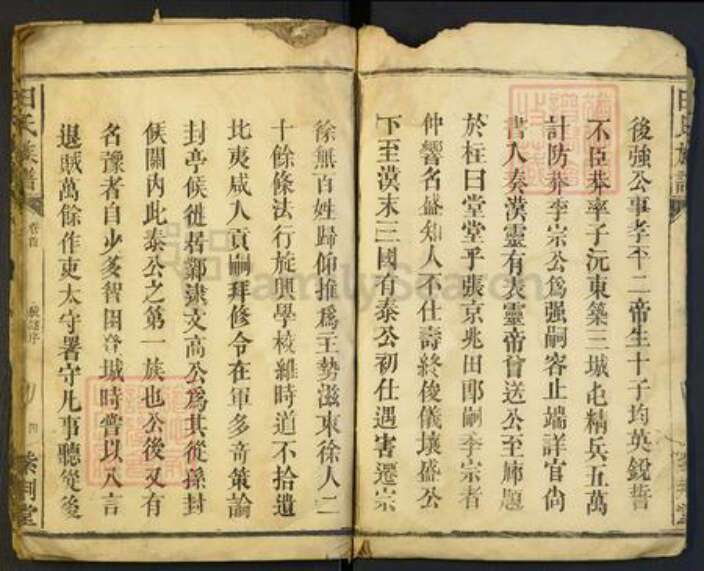 後強公事孝平二帝生十子均英銳誓
不臣莽率子沅東築三城屯精兵五萬
計防莽李宗公為强嗣容止端詳官尙
書入奏漢靈有表靈帝曾送公至師題
於柱曰堂堂乎張京兆田郎嗣李宗者
仲響名盛知人不仕壽終俊儀壤盛公
下至漢末三國有泰公初仕遇害遷宗
徐無百姓歸仰推為王勢滋東徐人二
十餘條法行旋興學校維時道不拾遺
北夷咸人貢嗣拜修令在軍多奇策論
封亭候徙居鄴逮文高公為其從孫封
候關內此泰公之第一族也公後又有
名豫者自少多智固守城時嘗以八言
退賊萬餘作東太守署守凡事聽從後
田氏族譜
卷首
序
四
紫荊堂
FamilySearch